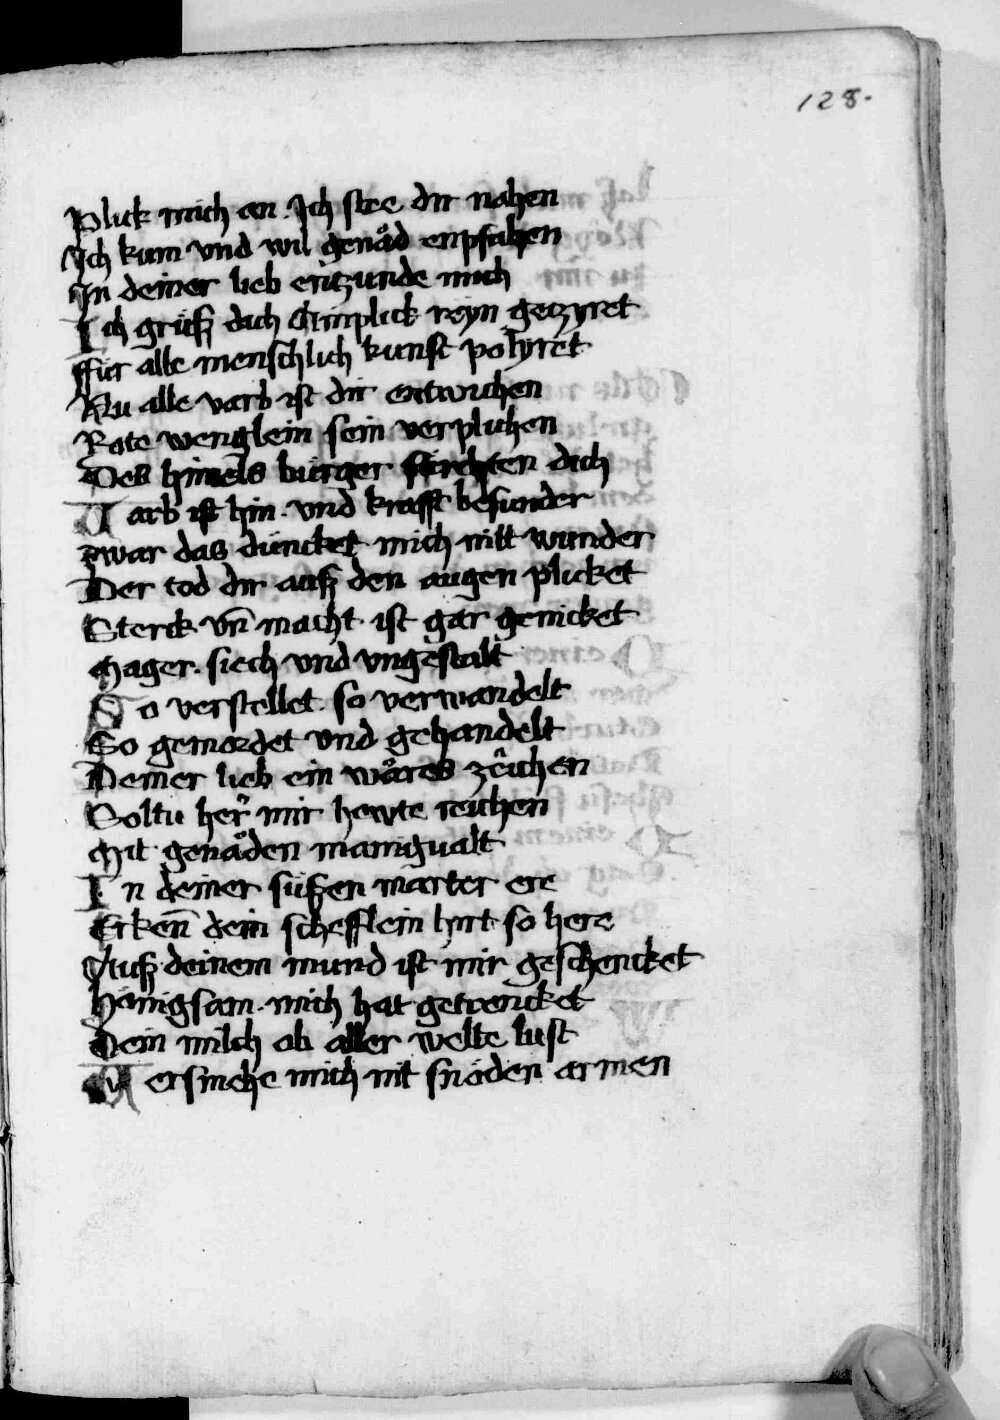 128.
Plick mich an. Ich stee dir nahen
Ich kum vnd wil genåd enpfahen
In deiner lieb entzunde mich
Ich grüß dich Anplick reyn gezyret
ffür alle menschlich kunst polyret
Nu alle varb ist dir entwichen
Rote wenglein sein verplichen
Des himels burger fürchten dich
Varb ist hin. vnd krafft besunder
zwar das düncket mich nitt wunder
Der tod dir auß den augen plicket
Sterck vn̄ macht ist gar genicket
Mager. siech vnd vngestalt
So verstellet. so verwandelt
So gemordet vnd gehandelt
Deiner lieb ein wåres zeichen
Soltu her mir hewte reichen
Mit genåden manigualt
In deiner süßen marter ere
Erken̄ dein schefflein hirt so here
Auß deinem mund ist mir geschencket
Hönigsam. mich hat getrencket
Dein milch ob aller welte lust
Versmehe mich nit snöden armen